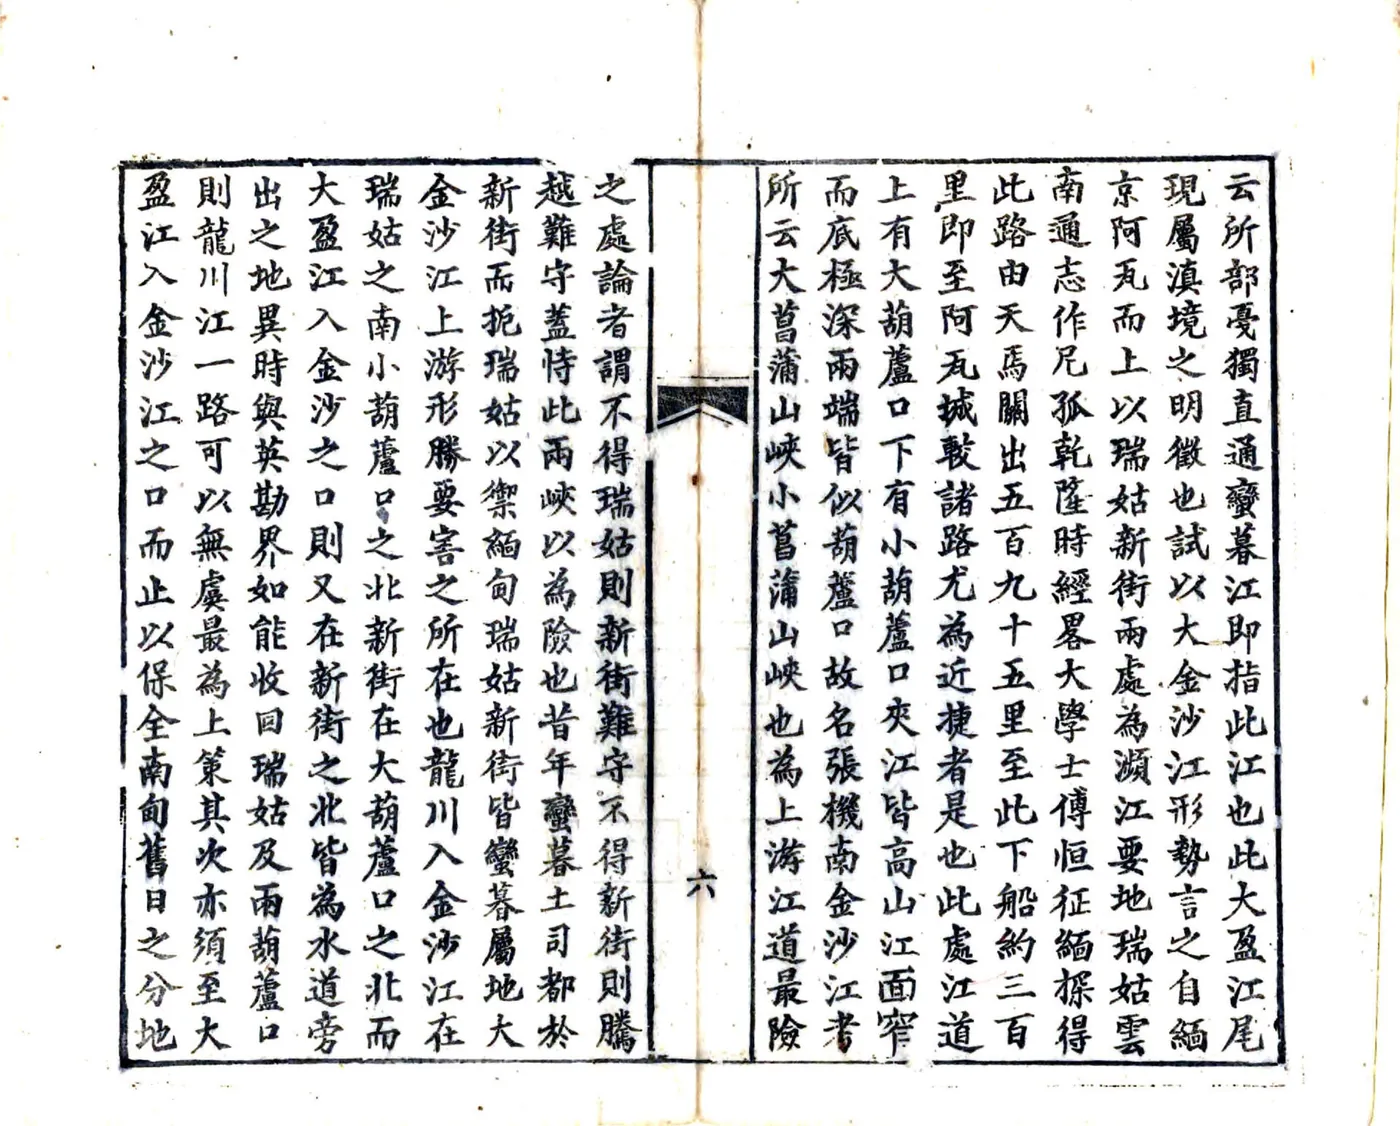 云所部憂獨直通蠻暮江即指此江也此大盈江尾
現屬滇境之明徵也試以大金沙江形勢言之自緬
京阿瓦而上以瑞姑新街兩處為瀕江要地瑞姑雲
南通志作尼孤乾隆時經畧大學士傅恒征緬探得
此路由天馬關出五百九十五里至此下船約三百
里即至阿瓦城較諸路尤為近捷者是也此處江道
上有大葫蘆口下有小葫蘆口夾江皆高山江面窄
而底極深兩端皆似葫蘆口故名張機南金沙江考
所云大菖蒲山峽小菖蒲山峽也為上游江道最險
六
之處論者謂不得瑞姑則新街難守不得新街則騰
越難守蓋恃此兩峽以為險也昔年蠻暮土司都於
新街而扼瑞姑以禦緬甸瑞姑新街皆蠻暮屬地大
金沙江上游形勝要害之所在也龍川入金沙江在
瑞姑之南小葫蘆口之北新街在大葫蘆口之北而
大盈江入金沙之口則又在新街之北皆為水道旁
出之地異時與英勘界如能收回瑞姑及兩葫蘆口
則龍川江一路可以無虞最為上策其次亦須至大
盈江入金沙江之口而止以保全南甸舊日之分地